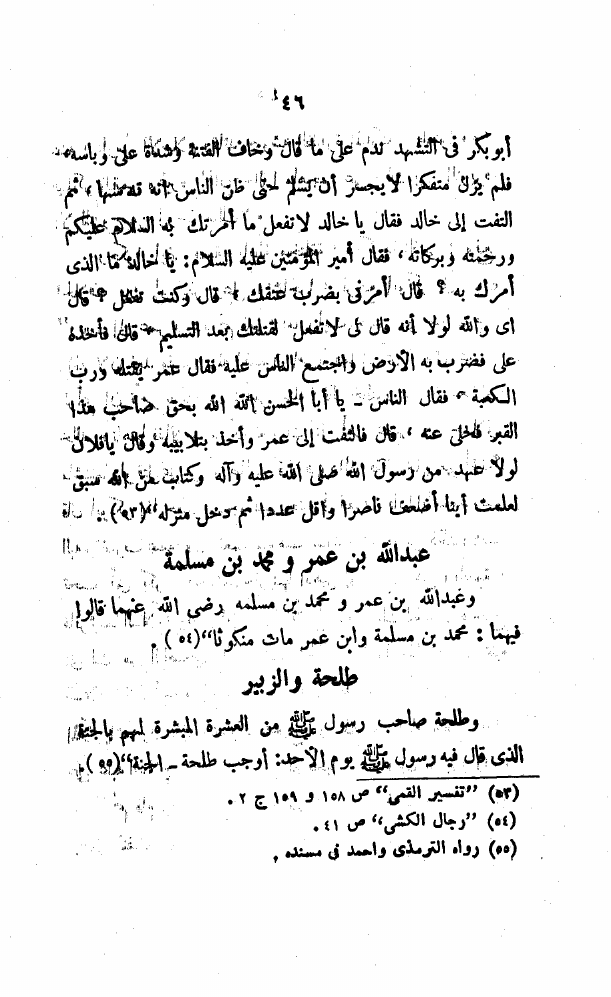 ٤٦
أبو بكر فى التشهد ندم على ما قال وخاف الفتنة وشدة على وبأسه
فلم يزل متفكرا لا يجسر أن يسلم حتى ظن الناس أنه قد سها، ثم
التفت إلى خالد فقال يا خالد لا تفعل ما أمرتك به السلام عليكم
ورحمته وبركاته، فقال أمير المؤمنين عليه السلام: يا خالد ما الذى
أمرك به؟ قال أمرنى بضرب عنقك، قال وكنت تفعل؟ قال
اى والله لولا أنه قال لى لا تفعل لقتلتك بعد التسليم، قال فأخذه
على فضرب به الأرض واجتمع الناس عليه فقال عمر يقتله ورب
الكعبة، فقال الناس ـ يا أبا الحسن الله الله بحق صاحب هذا
القبر فخلى عنه، قال فالتفت إلى عمر وأخذ بتلابيبه وقال يا فلان
لولا عهد من رسول الله صلى الله عليه وآله وكتاب من الله سبق
لعلمت أينا أضعف ناصرا وأقل عددا ثم دخل منزله"(٥٣).
عبدالله بن عمر و محمد بن مسلمة
وعبدالله بن عمر و محمد بن مسلمه رضى الله عنهما قالوا
فيهما: محمد بن مسلمة وابن عمر مات منكوثا"(٥٤).
طلحة والزبير
وطلحة صاحب رسول ﷺ من العشرة المبشرة لهم بالجنة
الذى قال فيه رسول ﷺ يوم الأحد: أوجب طلحة ـ الجنة"(٥٥).
(٥٣) "تفسير القمى" ص ١٥٨ و ١٥٩ ج ٢.
(٥٤) "رجال الكشى" ص ٤١.
(٥٥) رواه الترمذى واحمد فى مسنده.